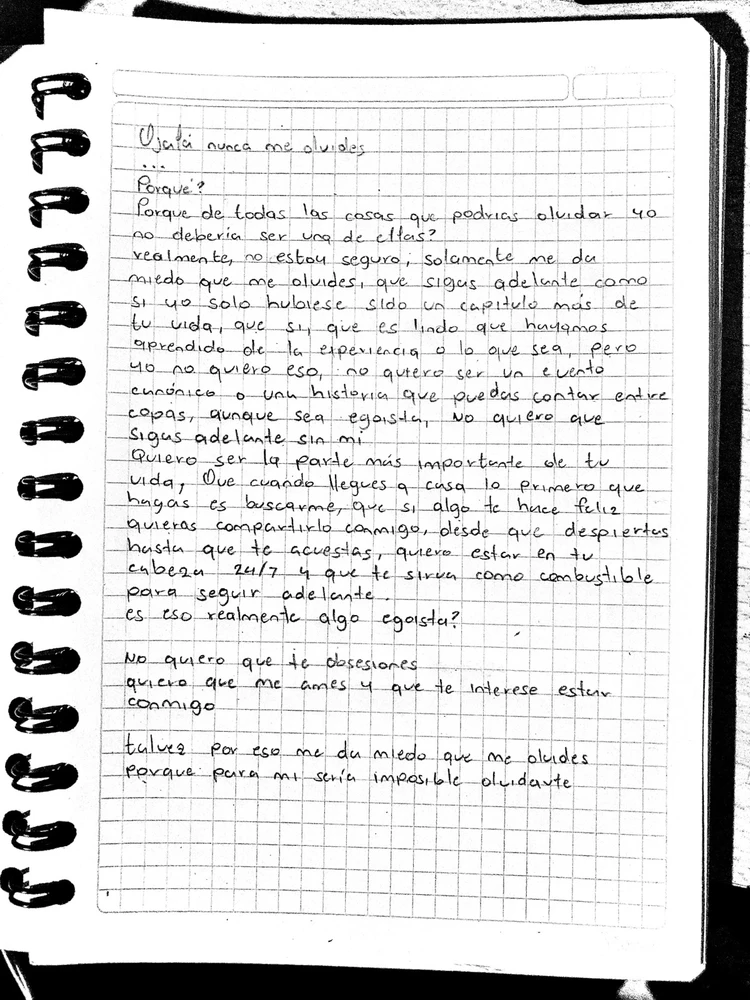 Ojalá nunca me olvides
...
Porqué?
Porque de todas las cosas que podrias olvidar yo
no debería ser una de ellas?
realmente, no estoy seguro, solamente me da
miedo que me olvides, que sigas adelante como
si yo solo hubiese sido un capitulo más de
tu vida, que si, que es lindo que hayamos
aprendido de la experiencia o lo que sea, pero
yo no quiero eso, no quiero ser un evento
canónico o una historia que puedas contar entre
copas, aunque sea egoista, no quiero que
sigas adelante sin mi
Quiero ser la parte más importante de tu
vida, Que cuando llegues a casa lo primero que
hagas es buscarme, que si algo te hace feliz
quieras compartirlo conmigo, desde que despiertas
hasta que te acuestas, quiero estar en tu
cabeza 24/7 y que te sirva como combustible
para seguir adelante.
es eso realmente algo egoista?
No quiero que te obsesiones
quiero que me ames y que te interese estar
conmigo
talvez por eso me da miedo que me olvides
porque para mi sería imposible olvidarte